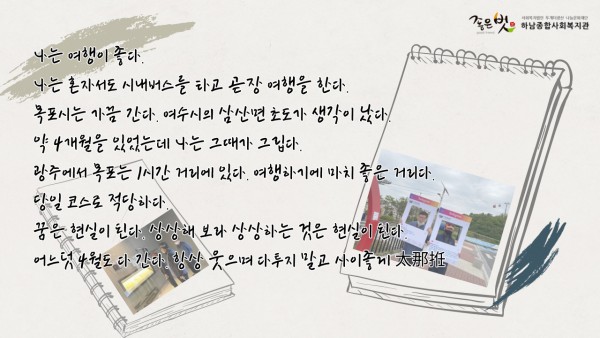 좋은벗
하남종합사회복지관
나는 여행이 좋다.
나는 혼자서도 시내버스를 타고 곧장 여행을 한다.
목포시는 가끔 간다. 여수시의 삼산면 초도가 생각이 났다.
약 4개월을 있었는데 나는 그때가 그립다.
광주에서 목포는 1시간 거리에 있다. 여행하기에 마치 좋은 거리다.
당일 코스로 적당하다.
꿈은 현실이 된다. 상상해 보라 상상하는 것은 현실이 된다
어느덧 4월도 다 간다. 항상 웃으며 다투지 말고 사이좋게 太那拰